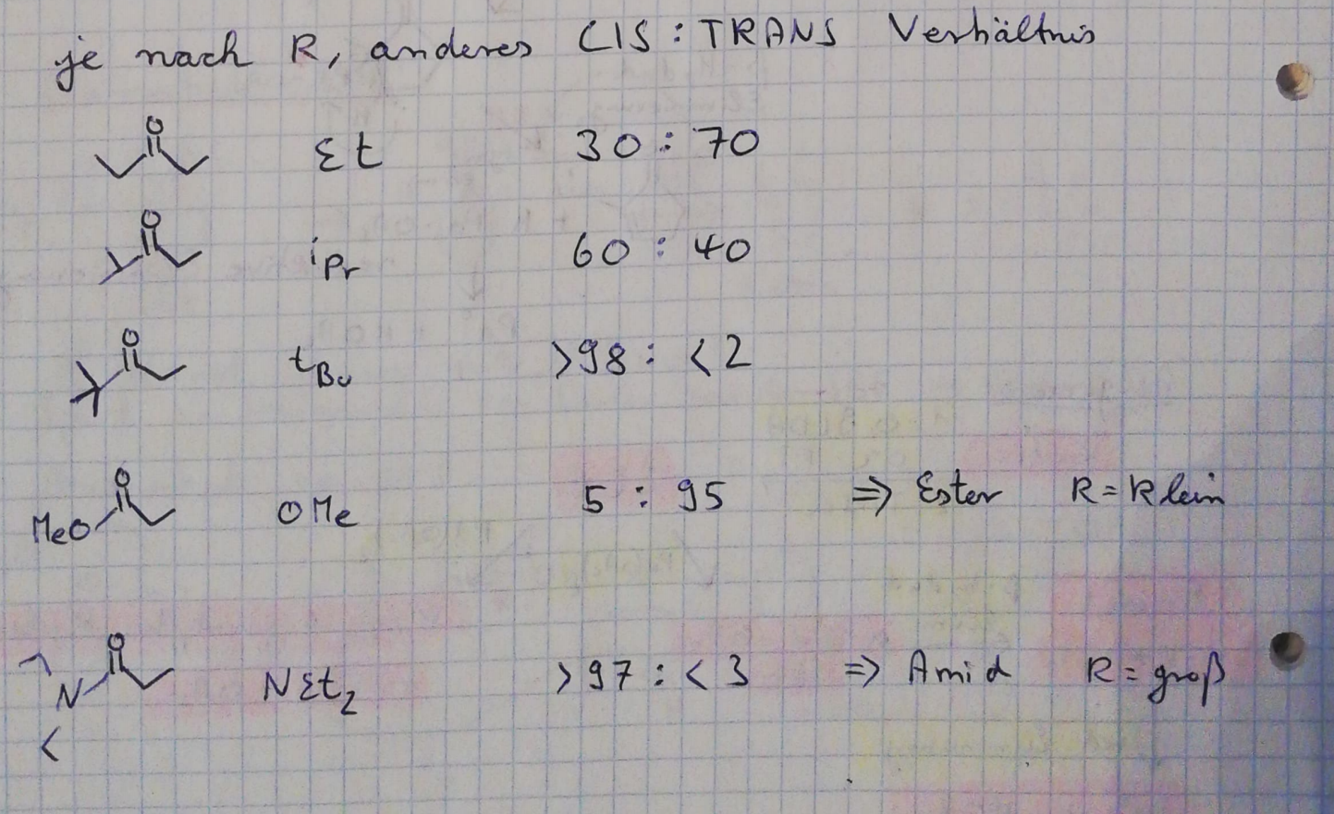 je nach R, anderes CIS : TRANS Verhältnis
O Et 30 : 70
O iPr 60 : 40
O tBu >98 : <2
MeO O OMe 5 : 95 ⇒ Ester R = klein
N O NEt2 >97 : <3 ⇒ Amid R = groß